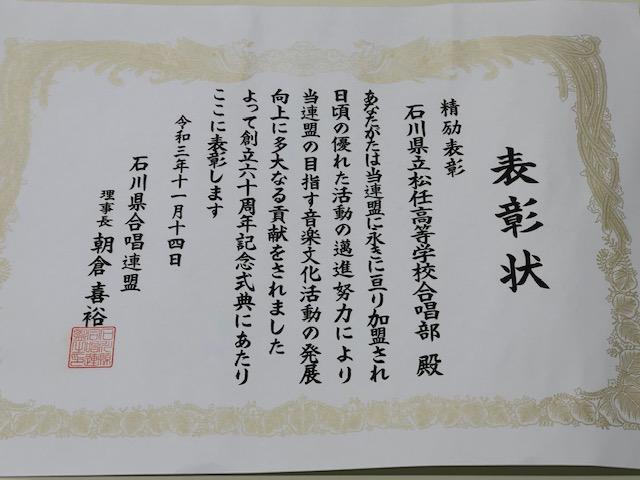 表彰状
精励表彰
石川県立松任高等学校合唱部 殿
あなたがたは当連盟に永きに亘り加盟され
日頃の優れた活動の邁進努力により
当連盟の目指す音楽文化活動の発展
向上に多大なる貢献をされました
よって創立六十周年記念式典にあたり
ここに表彰します
令和三年十一月十四日
石川県合唱連盟
理事長 朝倉喜裕